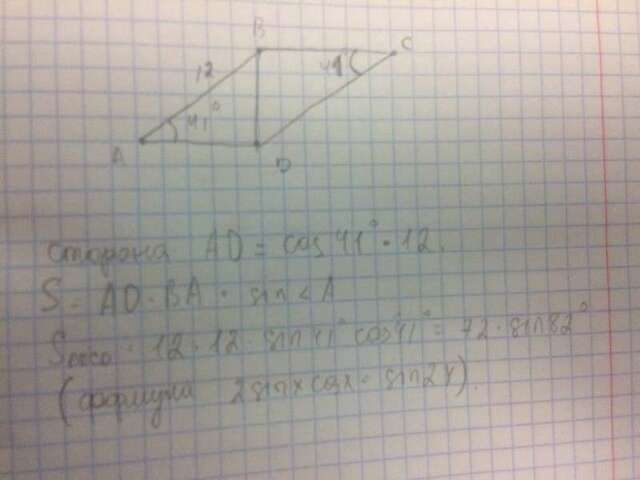 B
C
12
41°
41
A
D
сторона AD = cos 41° · 12.
S = AD · BA · sin ∠A
S = 12 · 12 · sin 41° cos 41° = 72 · sin 82°
(формула 2 sin x cos x = sin 2x).